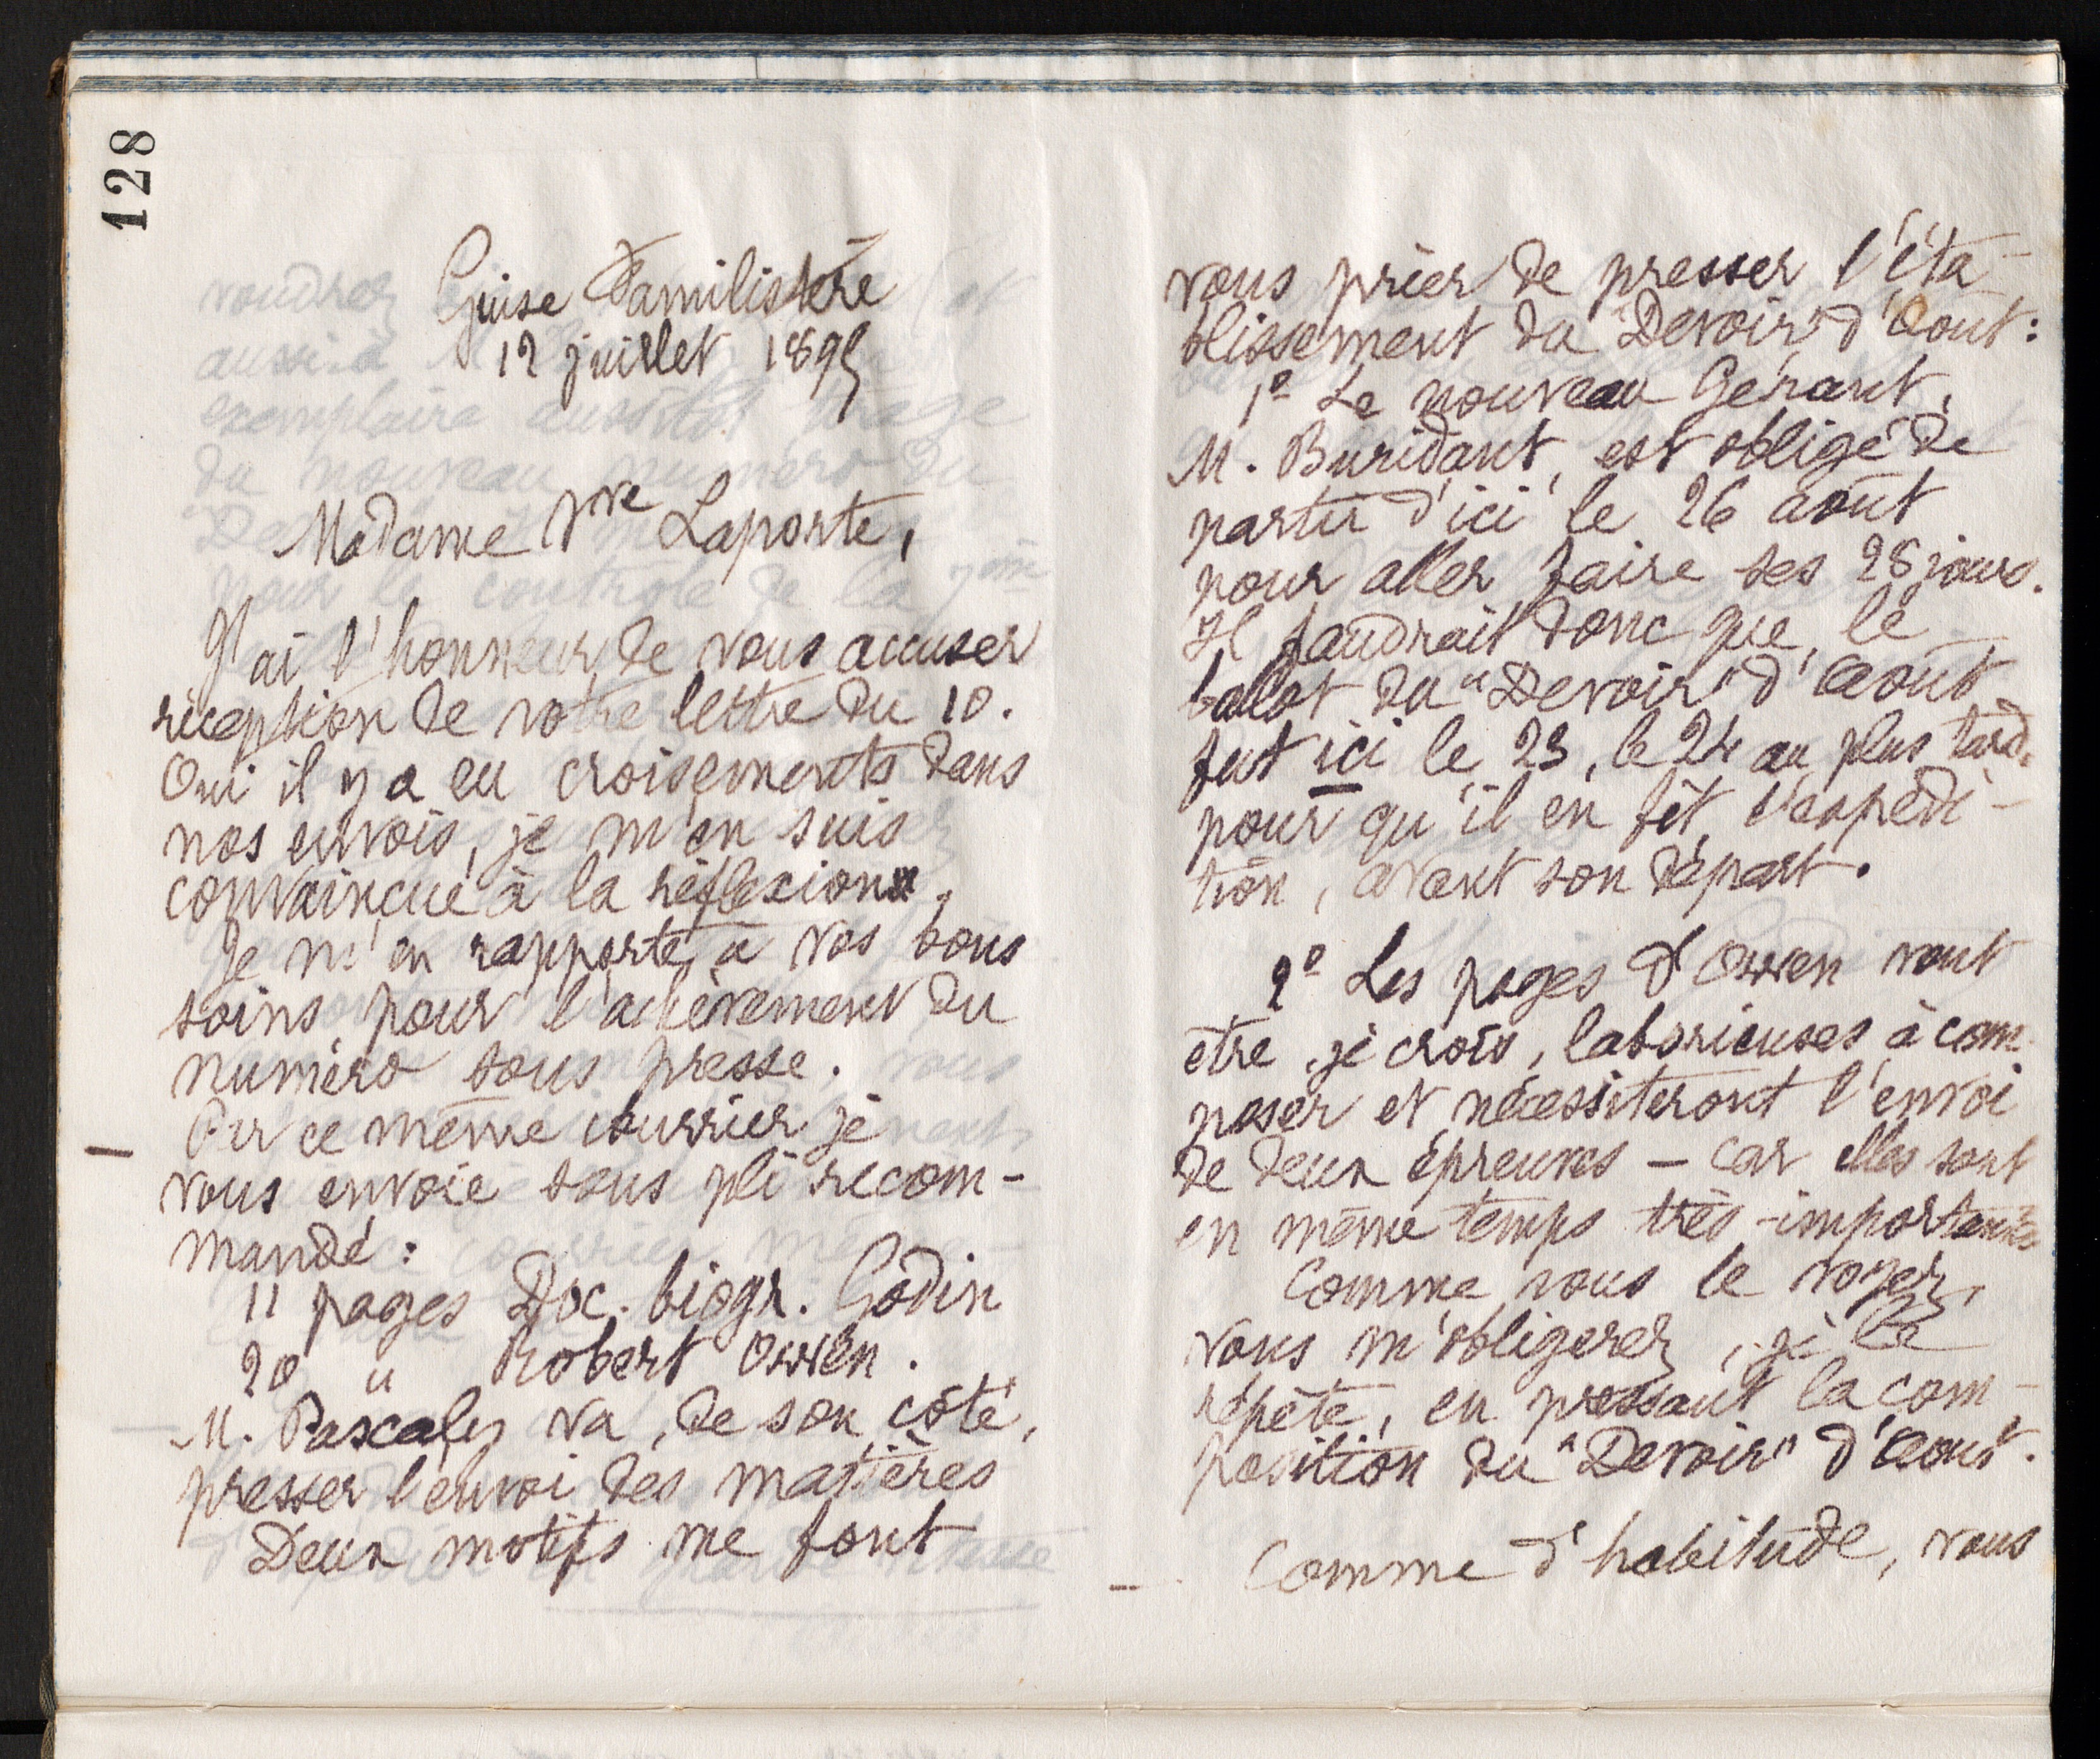 128
Guise Familistère
12 juillet 1895
Madame Vve Laporte,
J'ai l'honneur de vous accuser
réception de votre lettre du 10.
Oui il y a eu croisements dans
nos envois, je m'en suis
convaincue à la réflexion.
Je m'en rapporte à vos bons
soins pour l'achèvement du
numéro sous presse.
Par ce même courrier je
vous envoie sous pli recom-
mandé:
11 pages Doc. biogr. Godin
20 " Robert Owen.
M. Pascaly va, de son côté,
presser l'envoi des matières
Deux motifs me font
vous prier de presser l'éta-
blissement du "Devoir" d'Août:
1º Le nouveau Gérant,
M. Buridant, est obligé de
partir d'ici le 26 août
pour aller faire ses 28 jours.
Il faudrait donc que le
ballot du "Devoir" d'Août
fut ici le 23, le 24 au plus tard,
pour qu'il en fît l'expédi-
tion, avant son départ.
2º Les pages d'Owen vont
être, je crois, laborieuses à com-
poser et nécessiteront l'envoi
de deux épreuves – car elles sont
en même temps très-importantes
Comme vous le voyez,
vous m'obligerez, je le
répète, en pressant la com-
position du "Devoir" d'Août.
Comme d'habitude, vous